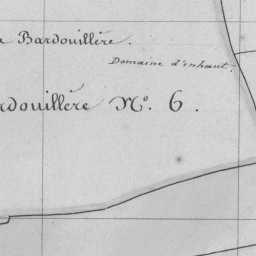 Bardouillère.
Domaine d'enhaut.
rdouillère Nº. 6.